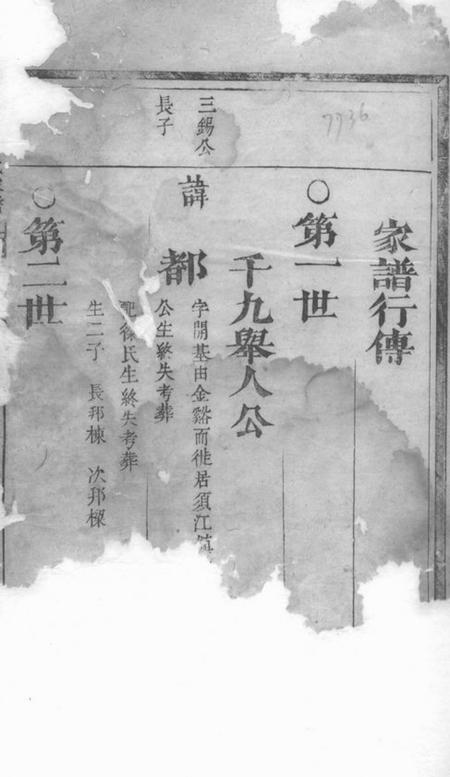 7736
家譜行傳
○第一世
千九舉人公
三錫公
長子
諱都
字開基由金谿而徙居須江
公生終失考葬
配徐氏生終失考葬
生二子 長邦棟 次邦樑
○第二世